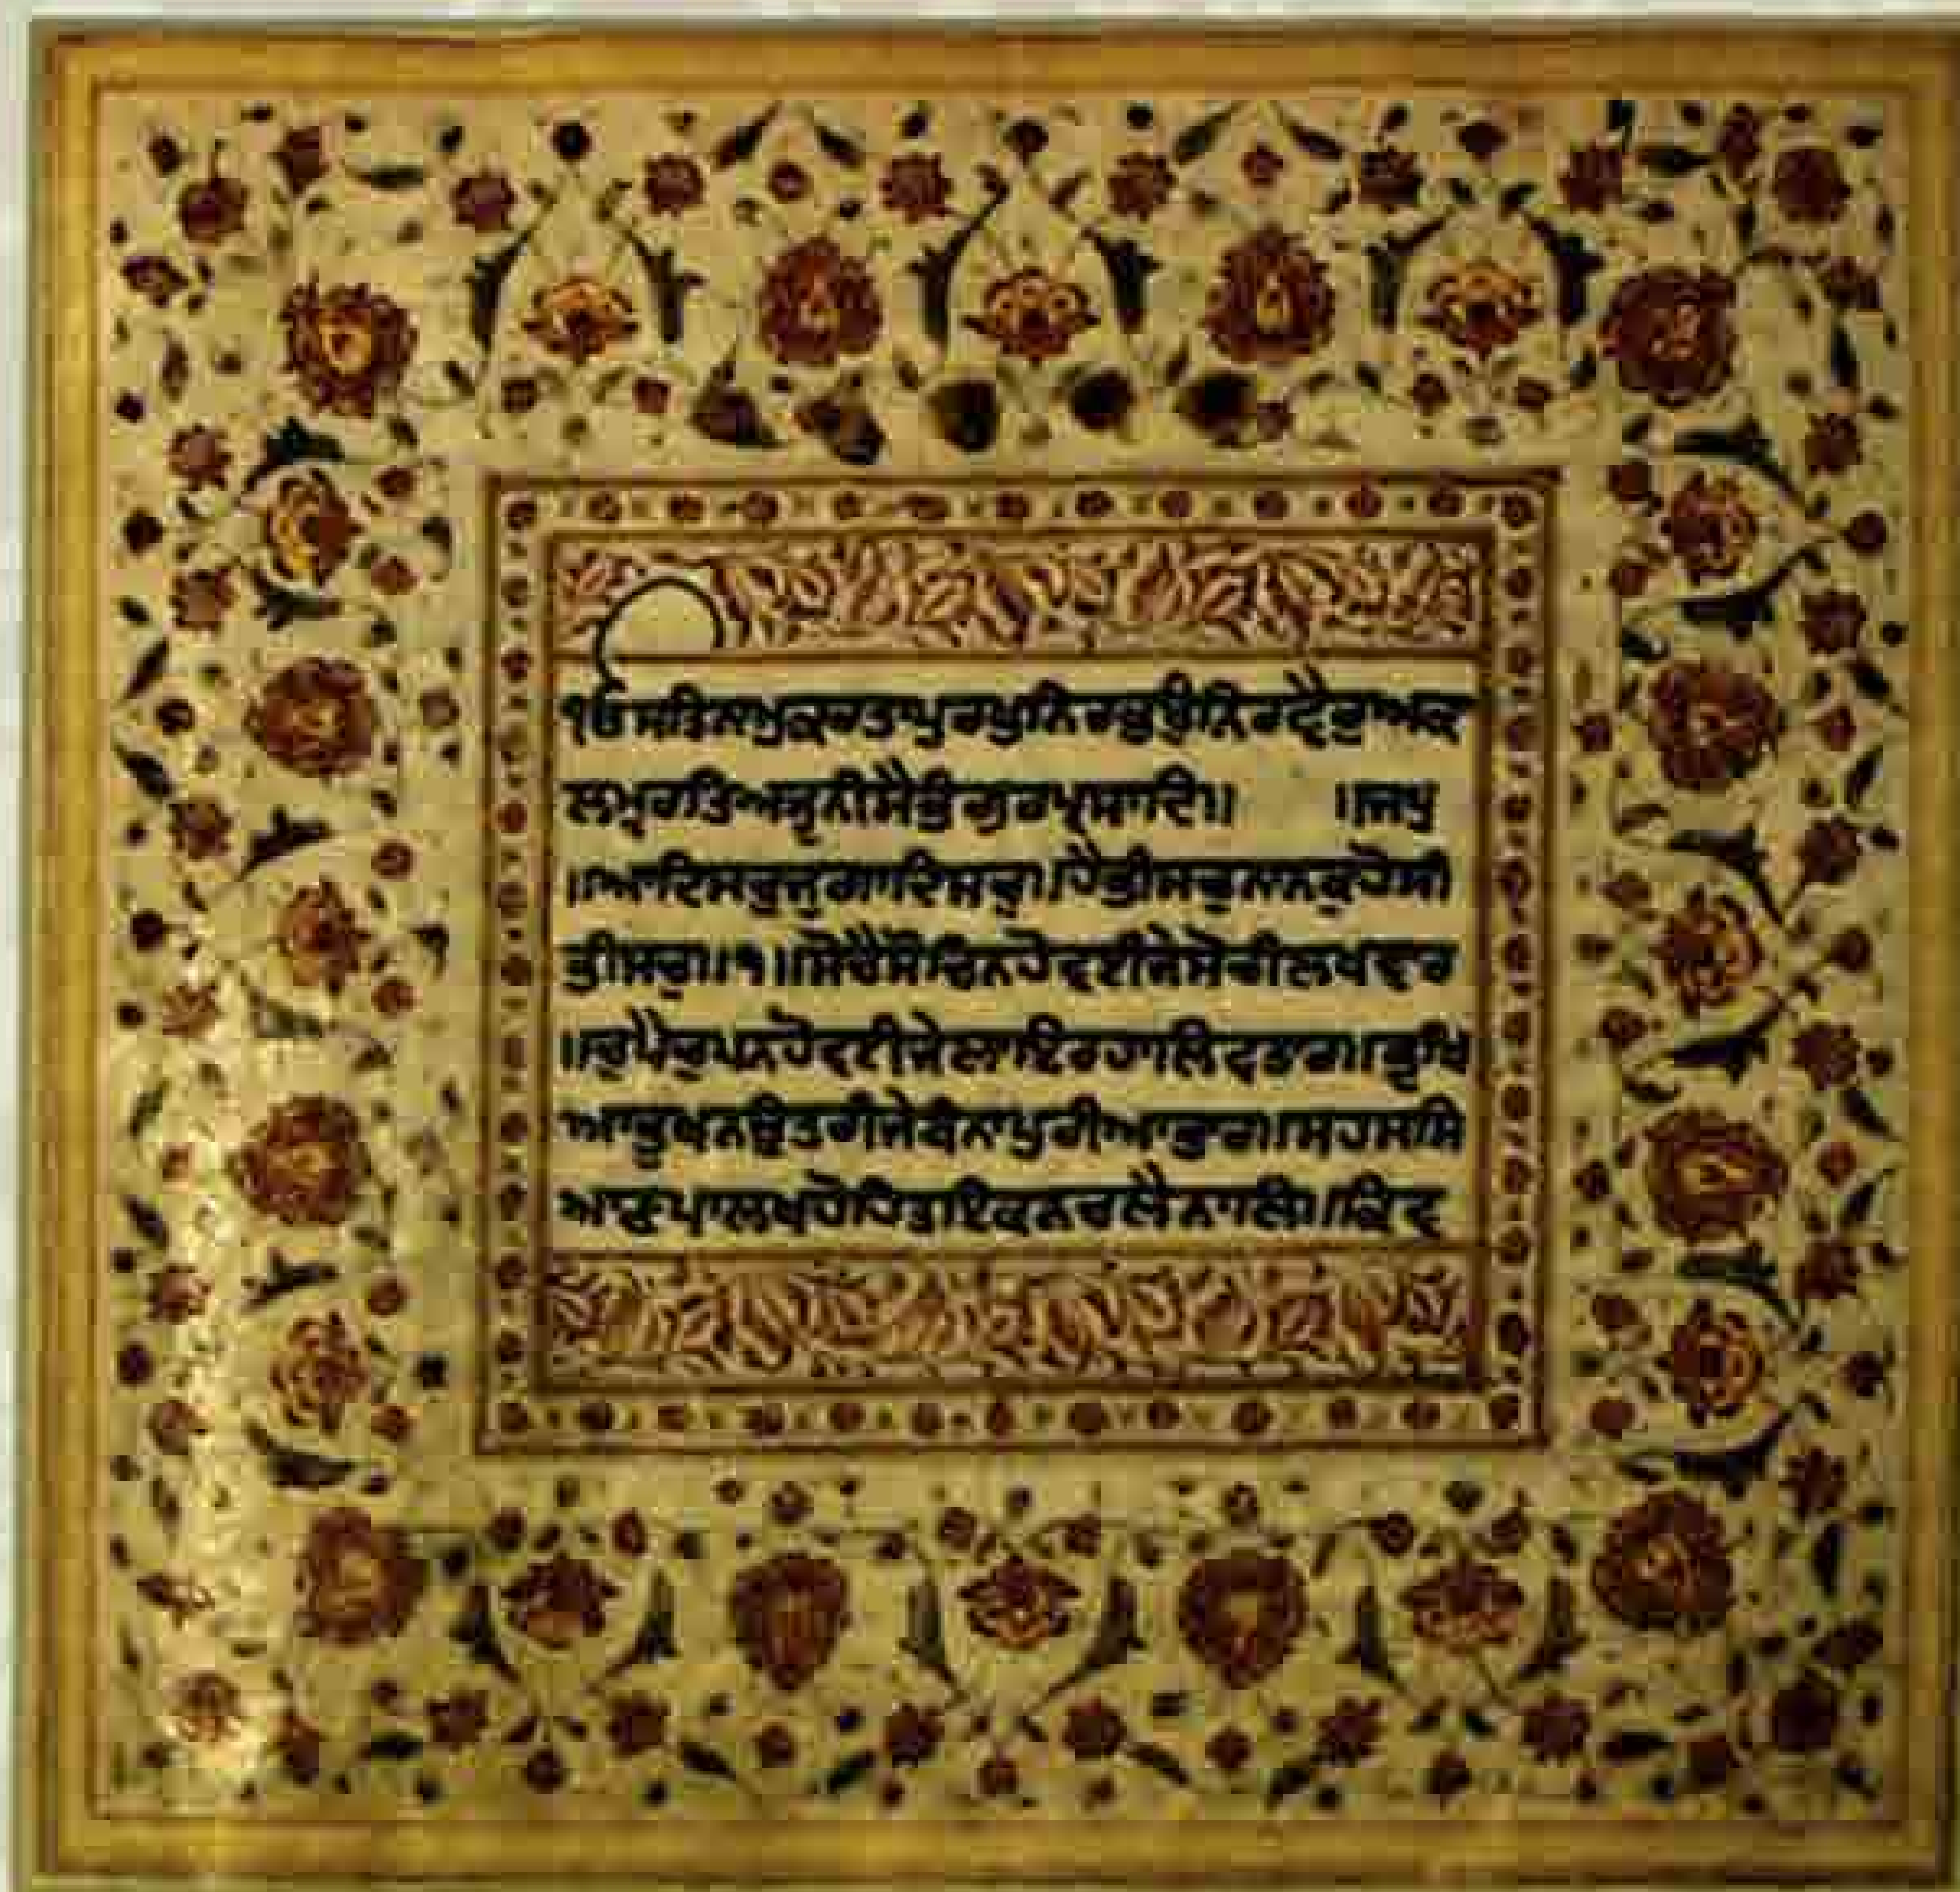 ੴਸਤਿਨਾਮੁਕਰਤਾਪੁਰਖੁਨਿਰਭਉਨਿਰਵੈਰੁਅਕਾ
ਲਮੂਰਤਿਅਜੂਨੀਸੈਭੰਗੁਰਪ੍ਰਸਾਦਿ॥ ॥ਜਪੁ
॥ਆਦਿਸਚੁਜੁਗਾਦਿਸਚੁ॥ਹੈਭੀਸਚੁਨਾਨਕਹੋਸੀ
ਭੀਸਚੁ॥੧॥ਸੋਚੈਸੋਚਿਨਹੋਵਈਜੇਸੋਚੀਲਖਵਾਰ
॥ਚੁਪੈਚੁਪਨਹੋਵਈਜੇਲਾਇਰਹਾਲਿਵਤਾਰ॥ਭੁਖਿ
ਆਭੁਖਨਉਤਰੀਜੇਬੰਨਾਪੁਰੀਆਭਾਰ॥ਸਹਸਸਿ
ਆਣਪਾਲਖਹੋਹਿਤਇਕਨਚਲੈਨਾਲਿ॥ਕਿਵ